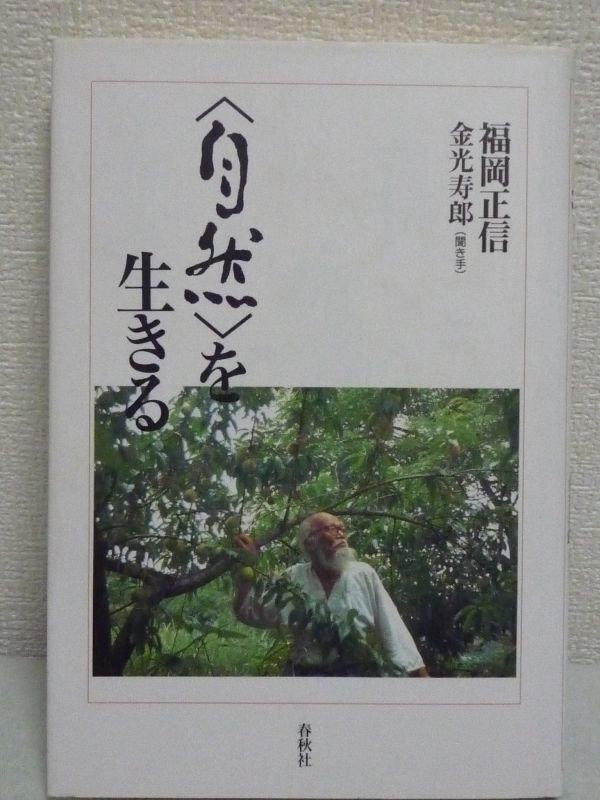 福岡正信
金光寿郎（聞き手）
〈自然〉を
生きる
春秋社